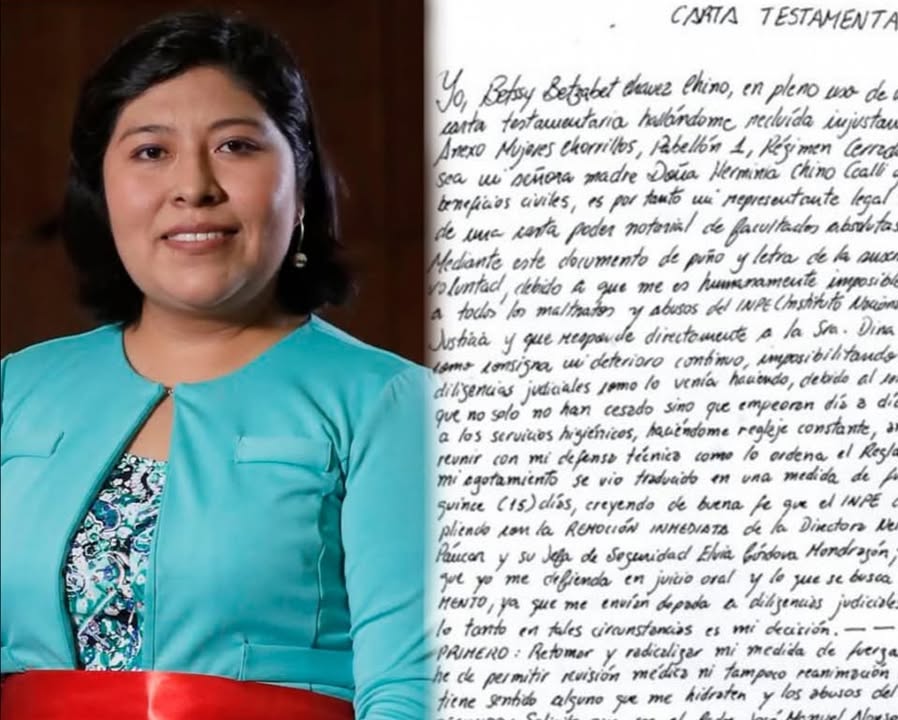 CARTA TESTAMENTA
Yo, Betssy Betzabet Chavez Chino, en pleno uso de
carta testamentaria hallándome recluída injusta
Anexo Mujeres Chorrillos, Pabellón 1, Régimen Cerrado
sea mi señora madre Doña Herminia Chino Ccalli
beneficios civiles, es por tanto mi representante legal
de una carta poder notarial de facultades absolutas
Mediante este documento de puño y letra de la
voluntad, debido a que me es humanamente imposible
a todos los maltratos y abusos del INPE (Instituto Nacional
Justicia y que responde directamente a la Sra. Dina
como consigna mi deterioro continuo, imposibilitando
diligencias judiciales como lo venía haciendo, debido al
que no solo no han cesado sino que empeoran día a día
a los servicios higiénicos, haciéndome reglaje constante,
reunir con mi defensa técnica como lo ordena el Regla
mi agotamiento se vio traducido en una medida de fu
quince (15) días, creyendo de buena fe que el INPE
pliendo con la REMOCIÓN INMEDIATA de la Directora
Páucar y su Jefa de Seguridad Elvia Córdova Mondragón,
que yo me defienda en juicio oral y lo que se busca
MENTO, ya que me envían dopada a diligencias judiciales
lo tanto en tales circunstancias es mi decisión. — —
PRIMERO: Retomar y radicalizar mi medida de fuerza
he de permitir revisión médica ni tampoco reanimación
tiene sentido alguno que me hidraten y los abusos del
José Manuel